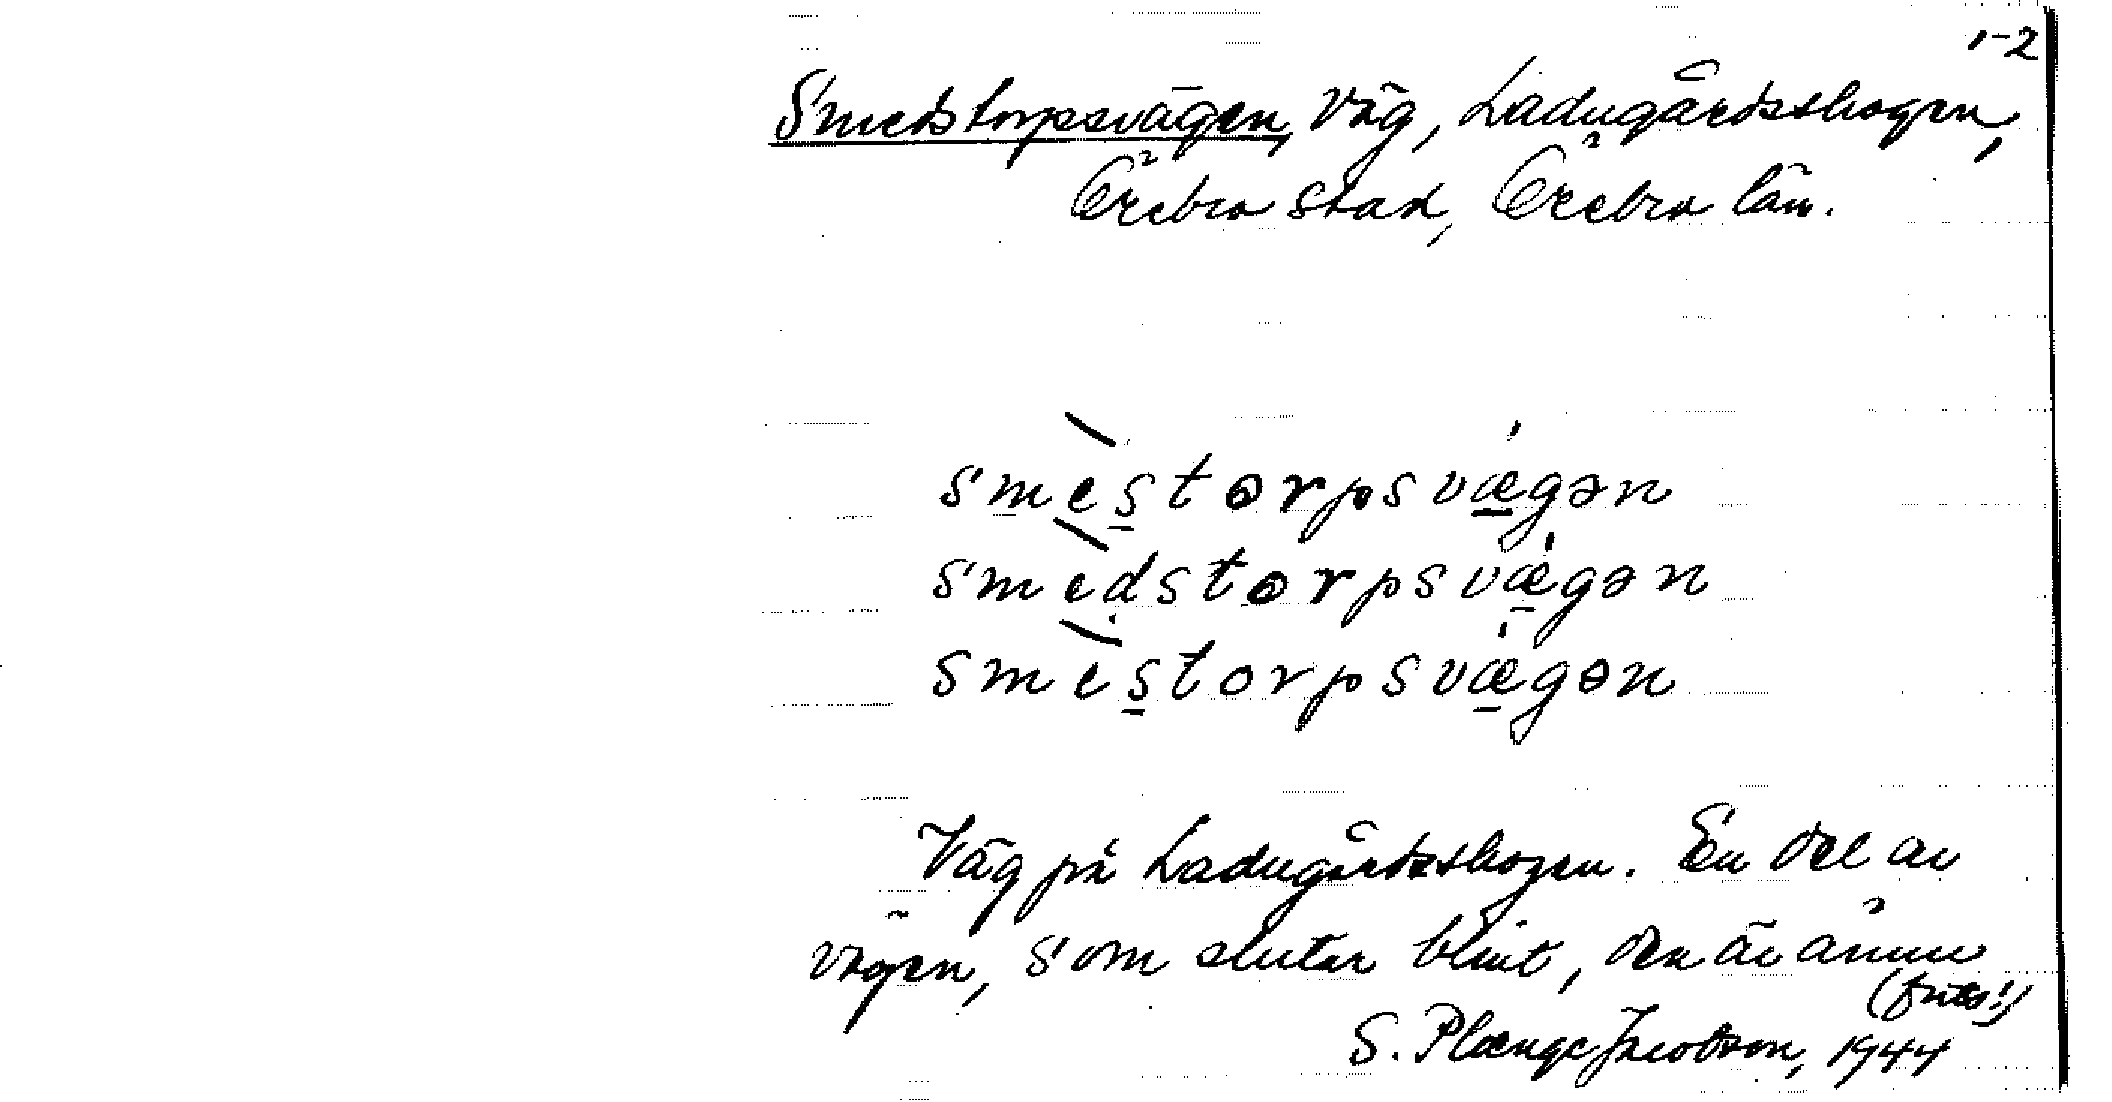 1-2
Smedstorpsvägen, väg, Ladugårdsskogen,
Örebro stad, Örebro län.
smès̱torpsvǽ̱gən
smèdstorpsvǽ̱gən
smès̱torpsvǽ̱gən
Väg på Ladugårdsskogen. En del av
vägen, som slutar blint, den är ännu
(forts!)
S. Plænge Jacobson, 1944